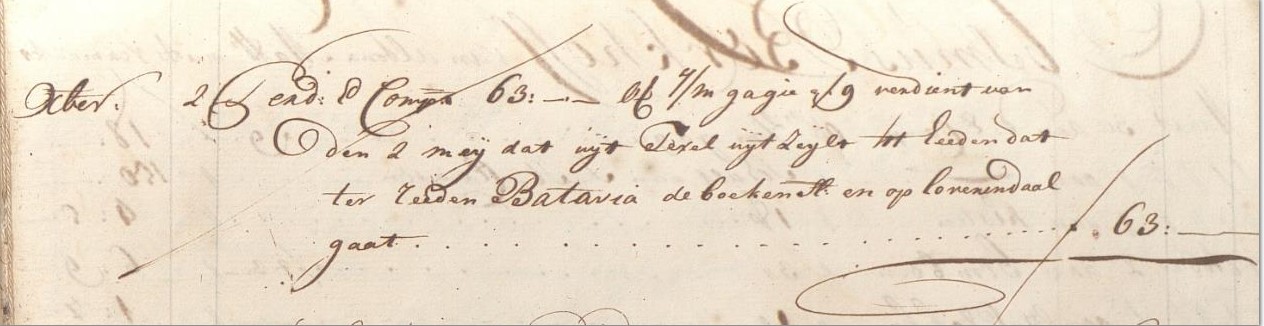 Xber: 2 end: d' Comp:a 63:—.— Off 7/m gagie à ƒ9 verdient van
den 2 meÿ dat uijt Texel uijt Zeÿlt tt heeden dat
ter reeden Batavia de boeken slt: en op lovenendaal
gaat . . . . . . . . . . . . . . . . . . . . 63:—